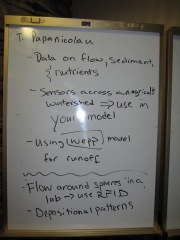 T. Papanicolau
- Data on flow, sediment,
& nutrients
- Sensors across an agricult
watershed => use in
your model
- Using WEPP model
for runoff
- Flow around spheres in a
lab → use RFID
- Depositional patterns